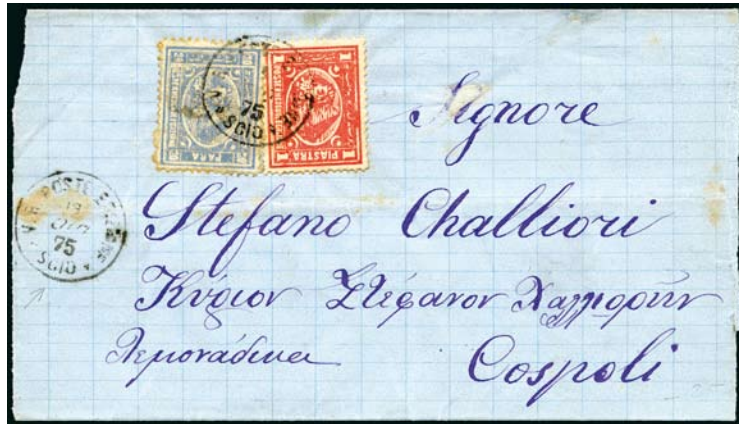 PARA
1 PIASTRA 1
75
SCIO
V.R. POSTE EGIZIANE
75
SCIO
Signore
Stefano Challiori
Κύριον Στέφανον Χαλλιορήν
Λεμονάδικα
Cospoli